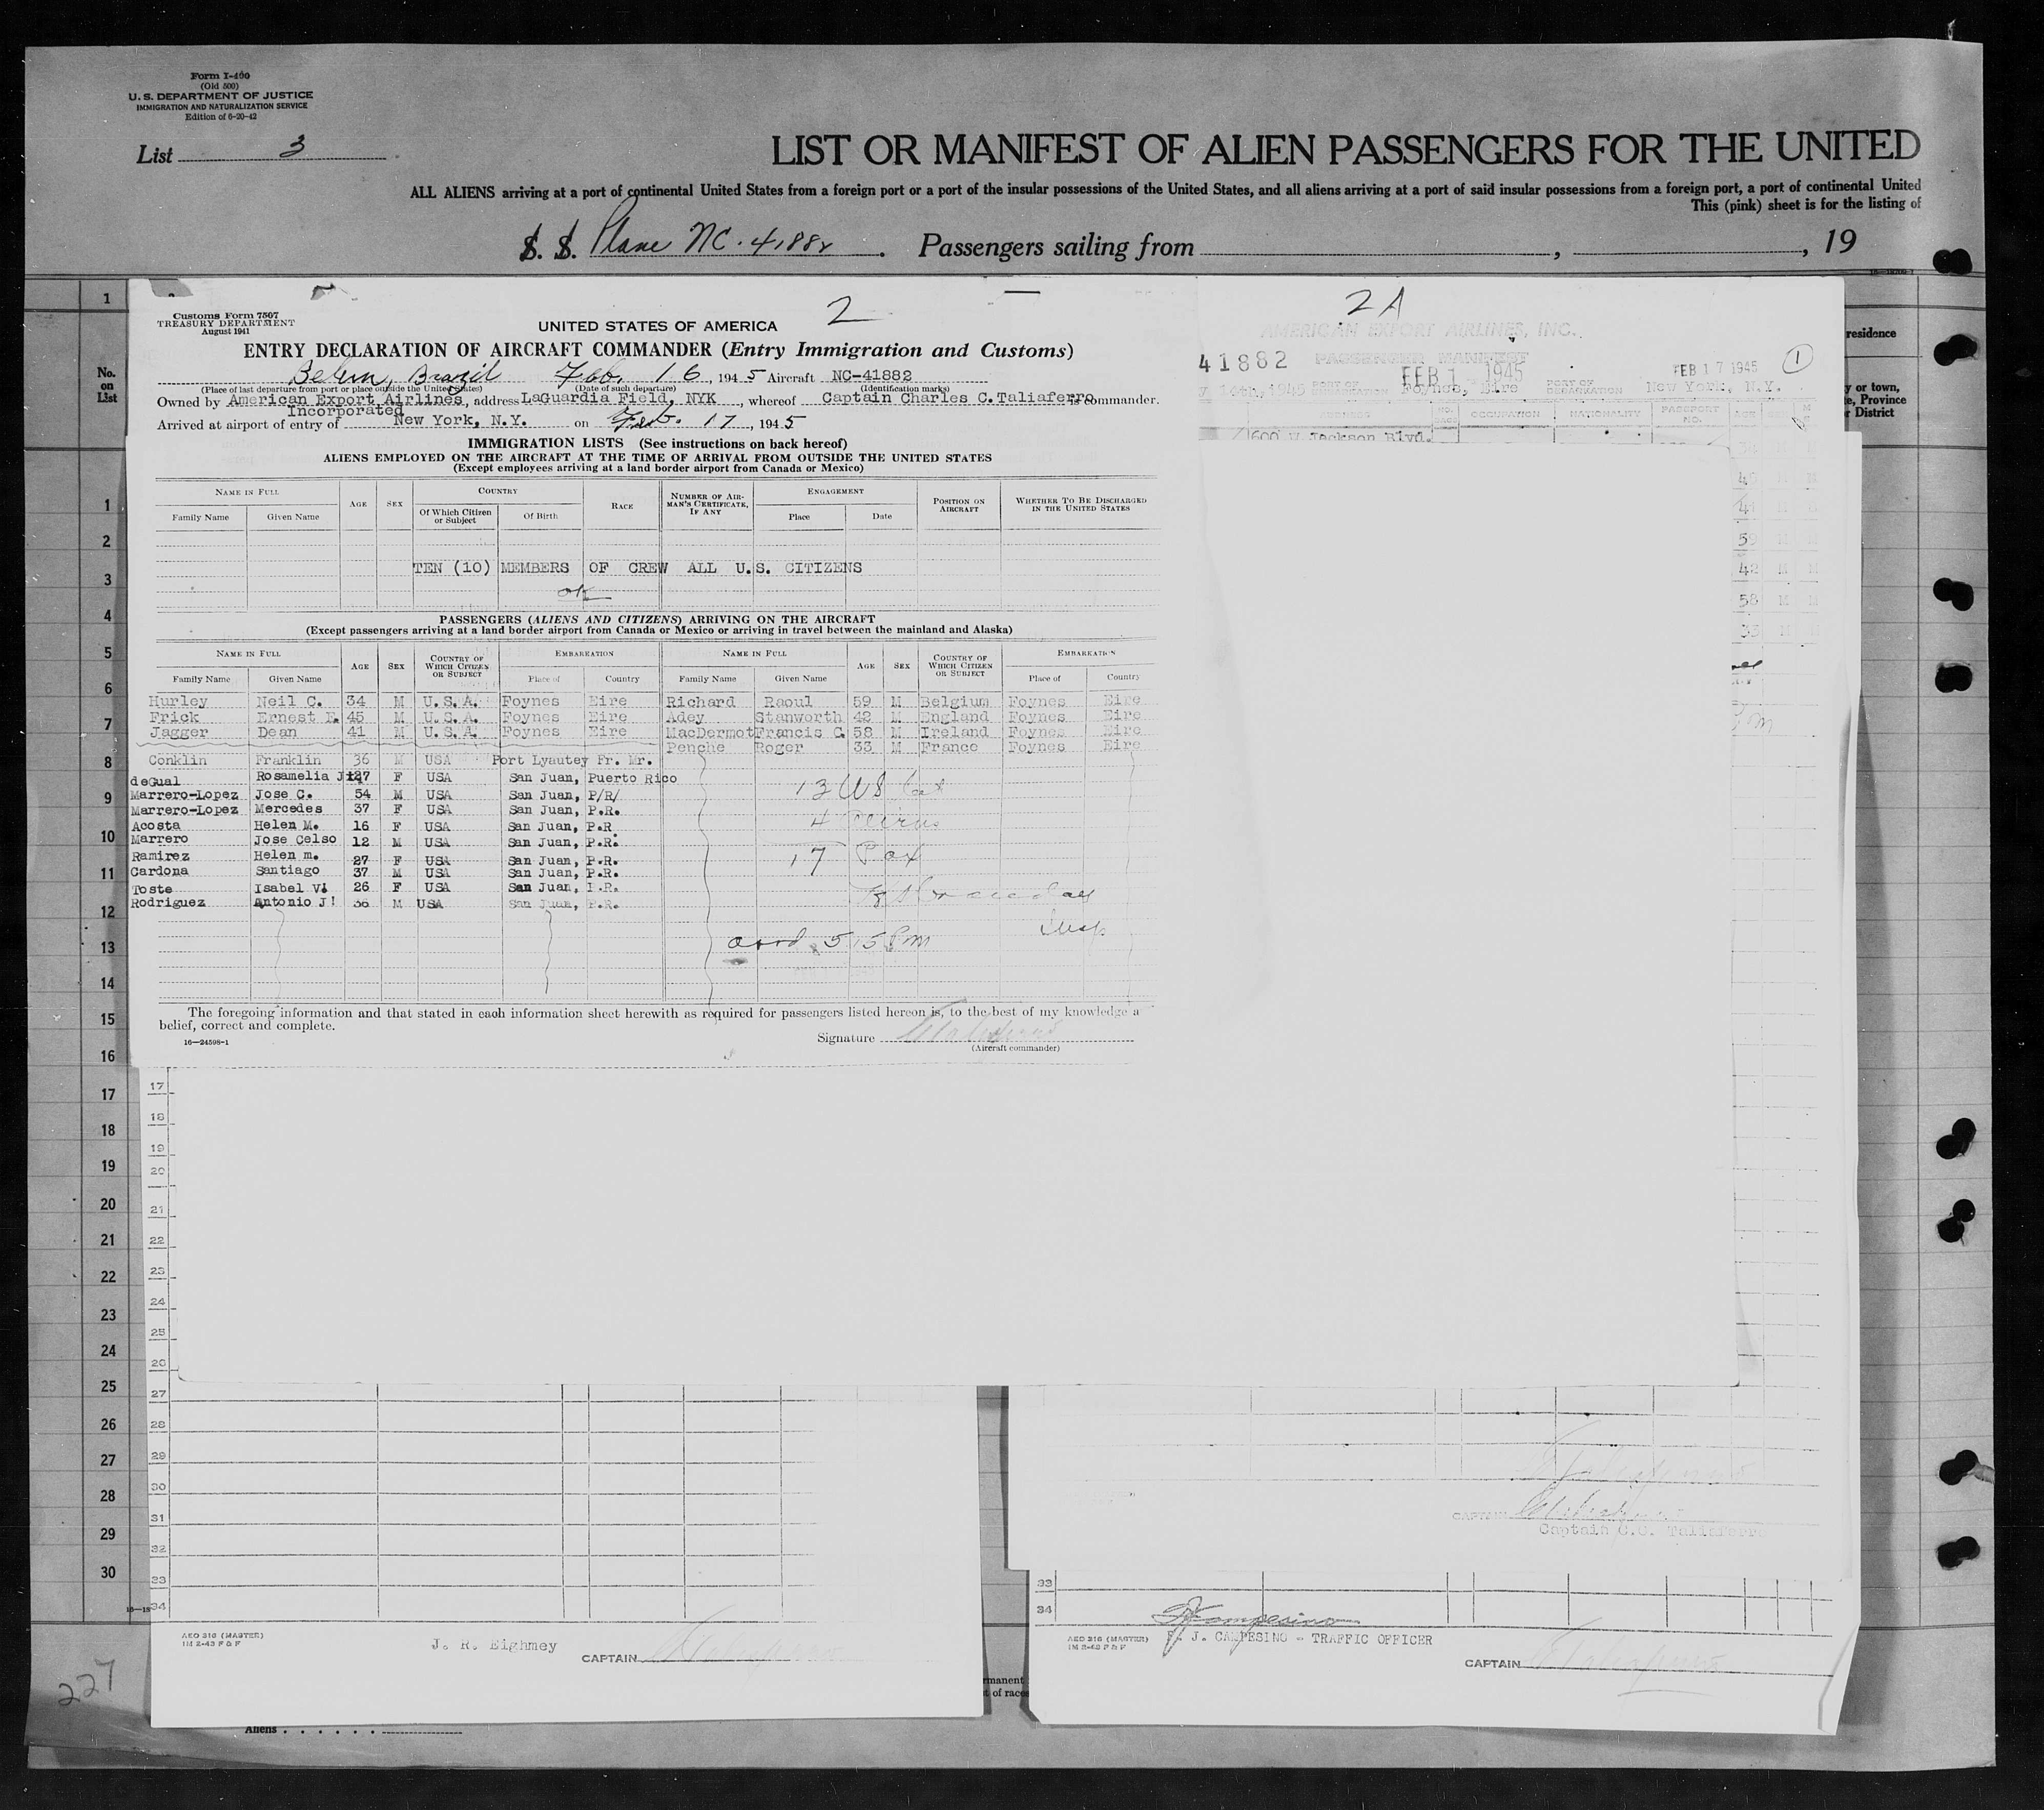 Form I-400
(Old 500)
U. S. DEPARTMENT OF JUSTICE
IMMIGRATION AND NATURALIZATION SERVICE
Edition of 6-20-42
List 3
LIST OR MANIFEST OF ALIEN PASSENGERS FOR THE UNITED
ALL ALIENS arriving at a port of continental United States from a foreign port or a port of the insular possessions of the United States, and all aliens arriving at a port of said insular possessions from a foreign port, a port of continental United
This (pink) sheet is for the listing of
S. S. Plane NC. 41882. Passengers sailing from , , 19
1
No. on List
residence
y or town,
e, Province
r District
Customs Form 7507
TREASURY DEPARTMENT
August 1941
2
UNITED STATES OF AMERICA
ENTRY DECLARATION OF AIRCRAFT COMMANDER (Entry Immigration and Customs)
Belem, Brazil Feb. 16, 1945 Aircraft NC-41882
(Place of last departure from port or place outside the United States) (Date of such departure) (Identification marks)
Owned by American Export Airlines, address LaGuardia Field, NYK, whereof Captain Charles C. Taliaferro is commander.
Incorporated
Arrived at airport of entry of New York, N.Y. on Feb. 17, 1945
IMMIGRATION LISTS (See instructions on back hereof)
ALIENS EMPLOYED ON THE AIRCRAFT AT THE TIME OF ARRIVAL FROM OUTSIDE THE UNITED STATES
(Except employees arriving at a land border airport from Canada or Mexico)
NAME IN FULL AGE SEX COUNTRY RACE NUMBER OF AIRMAN'S CERTIFICATE, IF ANY ENGAGEMENT POSITION ON AIRCRAFT WHETHER TO BE DISCHARGED IN THE UNITED STATES
Family Name Given Name Of Which Citizen or Subject Of Birth Place Date
TEN (10) MEMBERS OF CREW ALL U.S. CITIZENS
ok
PASSENGERS (ALIENS AND CITIZENS) ARRIVING ON THE AIRCRAFT
(Except passengers arriving at a land border airport from Canada or Mexico or arriving in travel between the mainland and Alaska)
NAME IN FULL AGE SEX COUNTRY OF WHICH CITIZEN OR SUBJECT EMBARKATION NAME IN FULL AGE SEX COUNTRY OF WHICH CITIZEN OR SUBJECT EMBARKATION
Family Name Given Name Place of Country Family Name Given Name Place of Country
Hurley Neil C. 34 M U.S.A. Foynes Eire Richard Raoul 59 M Belgium Foynes Eire
Frick Ernest E. 45 M U.S.A. Foynes Eire Adey Stanworth 42 M England Foynes Eire
Jagger Dean 41 M U.S.A. Foynes Eire MacDermot Francis C. 58 M Ireland Foynes Eire
Penche Roger 33 M France Foynes Eire
Conklin Franklin 36 M USA Port Lyautey Fr. Mr.
deGual Rosamelia J 27 F USA San Juan, Puerto Rico
Marrero-Lopez Jose C. 54 M USA San Juan, P/R/
Marrero-Lopez Mercedes 37 F USA San Juan, P.R.
Acosta Helen M. 16 F USA San Juan, P.R
Marrero Jose Celso 12 M USA San Juan, P.R.
Ramirez Helen m. 27 F USA San Juan, P.R.
Cardona Santiago 37 M USA San Juan, P.R.
Toste Isabel V. 26 F USA San Juan, P.R.
Rodriguez Antonio J! 36 M USA San Juan, P.R.
13 US Cit
4 aliens
17 Pax
Insp
arrd 5 15 Pm
The foregoing information and that stated in each information sheet herewith as required for passengers listed hereon is, to the best of my knowledge a
belief, correct and complete.
16—24598-1
Signature
(Aircraft commander)
2A
AMERICAN EXPORT AIRLINES, INC.
41882 PASSENGER MANIFEST FEB 17 1945 1
FEB 1 1945
14th, 1945 PORT OF Foynes, Eire PORT OF DEBARKATION New York, N.Y.
OCCUPATION NATIONALITY PASSPORT NO. AGE
600 W Jackson Blvd.
46 M
41 M
59 M M
42 M M
58 M M
33 M
1
2
3
4
5
6
7
8
9
10
11
12
13
14
15
16
17
18
19
20
21
22
23
24
25
26
27
28
29
30
17
18
19
20
21
22
23
24
25
26
27
28
29
30
31
32
33
34
AEO 316 (MASTER)
1M 2-43 F & F
J. R. Eighmey
CAPTAIN
CAPTAIN
Captain C.C. Taliaferro
33
34
AEO 316 (MASTER)
1M 2-43 F & F
F. J. CAMPESINO - TRAFFIC OFFICER
CAPTAIN
227
rmanent
t of races
Aliens